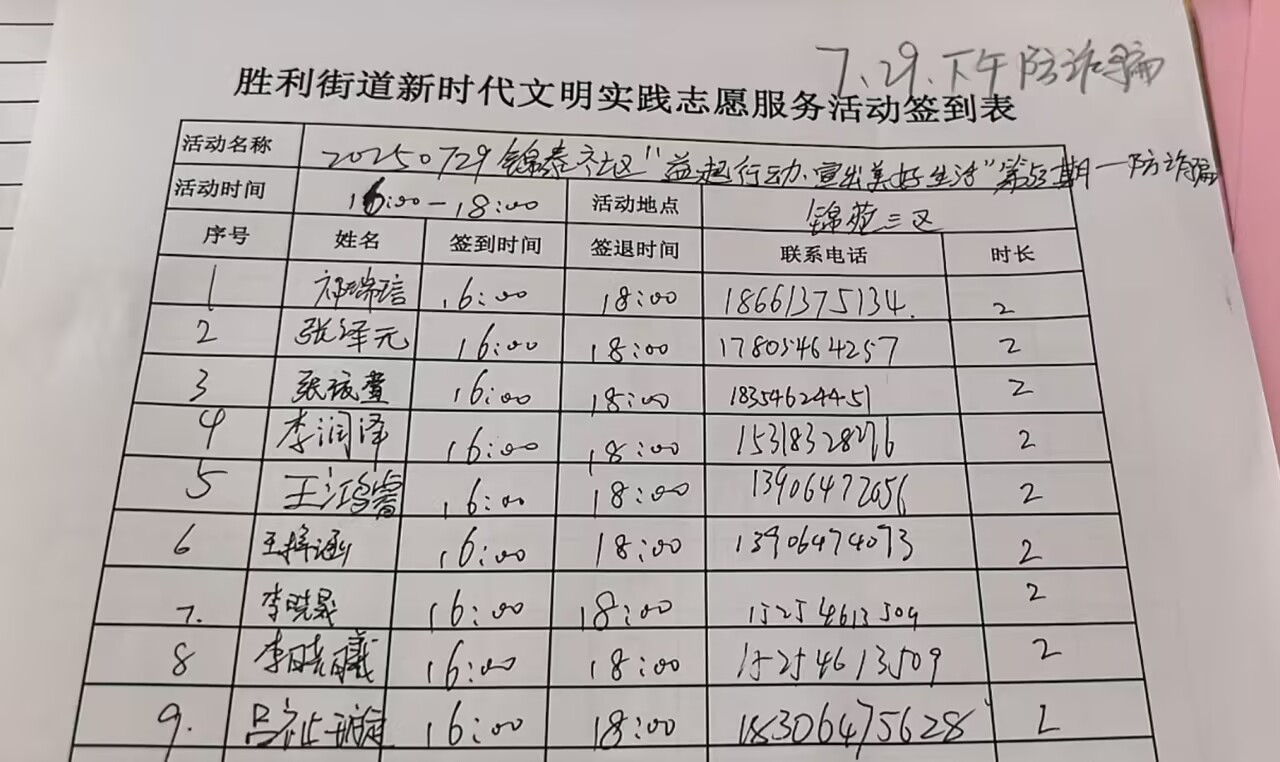 7.29.下午防诈骗
胜利街道新时代文明实践志愿服务活动签到表
活动名称 20250729锦泰社区"益起行动·宣出美好生活"第53期—防诈骗
活动时间 16:00-18:00 活动地点 锦苑三区
序号 姓名 签到时间 签退时间 联系电话 时长
1 祁瑞瑄 16:00 18:00 18661375134. 2
2 张泽元 16:00 18:00 17805464257 2
3 张 16:00 18:00 18354624451 2
4 李润泽 16:00 18:00 15318328276 2
5 王鸿睿 16:00 18:00 13906472056 2
6 王梓涵 16:00 18:00 13906474073 2
7. 李晓晟 16:00 18:00 15254613509 2
8 李晓曦 16:00 18:00 15254613509 2
9. 吕 16:00 18:00 18306475628 2